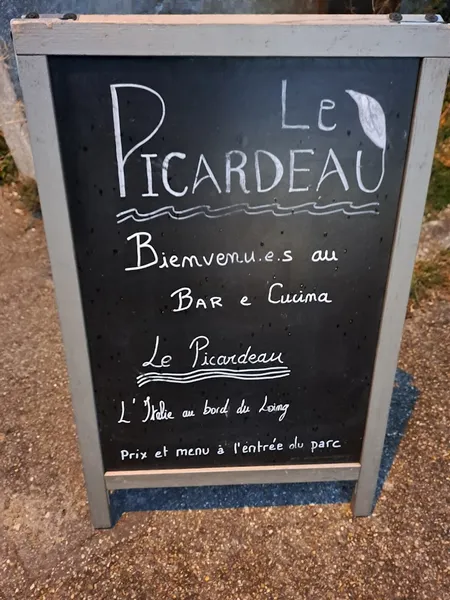 Le
PICARDEAU
Bienvenu.e.s au
BAR e Cucina
Le Picardeau
L'Italie au bord du Loing
Prix et menu à l'entrée du parc